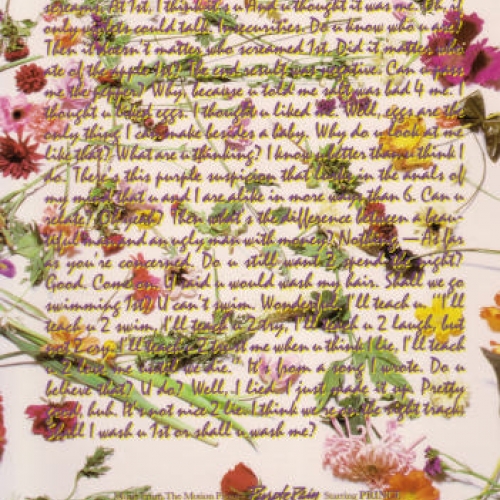 screams. At 1st, I think it's u And u thought it was me. Oh, if
only walls could talk. Insecurities. Do u know who u are?
Then it doesn't matter who screamed 1st. Did it matter who
ate of the apple 1st? The end result was negative. Can u pass
me the pepper? Why, because u told me salt was bad 4 me. I
thought u loved eggs. I thought u liked me. Well, eggs are the
only thing I can make besides a baby. Why do u look at me
like that? What are u thinking? I know better than u think I
do. There's this purple suspicion that in the anals of
my mind that u and I are alike in more ways than 6. Can u
relate? Then what's the difference between a beau-
tiful man and an ugly man with money? Nothing—As far
as you're concerned. Do u still want 2 spend the night?
Good. Come on. I said u would wash my hair. Shall we go
swimming 1st? U can't swim. Wonderful I'll teach u. "I'll
teach u 2 swim, I'll teach u 2 try, I'll teach u 2 laugh, but
not 2 cry. I'll teach u 2 trust me when u think I lie, I'll teach
u 2 love me until we die." It's from a song I wrote. Do u
believe that? U do? Well, I lied. I just made it up. Pretty
good, huh. It's not nice 2 lie. I think we're on the right track
Shall I wash u 1st or shall u wash me?
The Motion Purple Rain Starring PRINCE